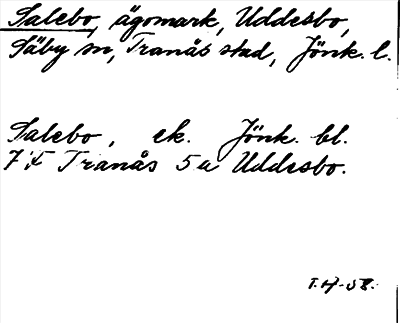 Salebo, ägomark, Uddesbo,
Säby sn, Tranås stad, Jönk. l.
Salebo, ek. Jönk. bl.
7 F Tranås 5 a Uddesbo.
T.H-58.